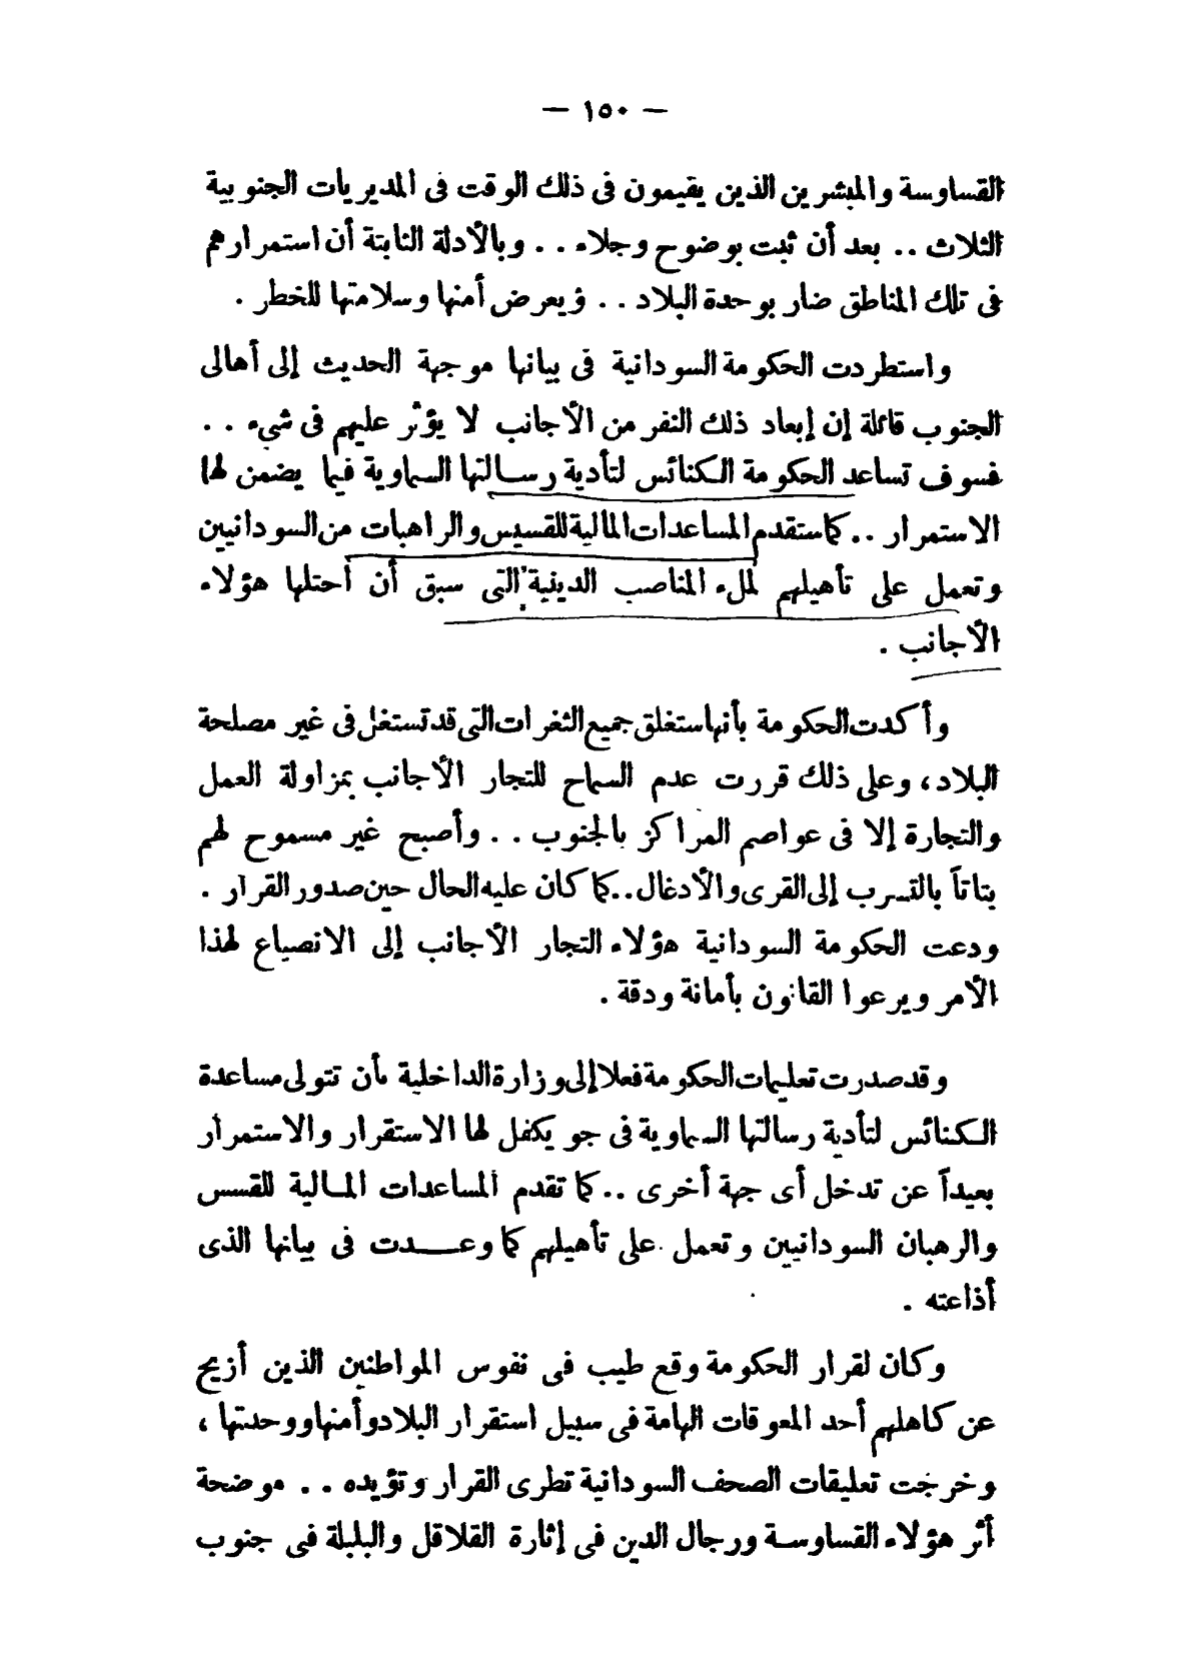 — ١٥٠ —
القساوسة والمبشرين الذين يقيمون فى ذلك الوقت فى المديريات الجنوبية
الثلاث .. بعد أن ثبت بوضوح وجلاء .. وبالأدلة الثابتة أن استمرارهم
فى تلك المناطق ضار بوحدة البلاد .. ويعرض أمنها وسلامتها للخطر .
واستطردت الحكومة السودانية فى بيانها موجهة الحديث إلى أهالى
الجنوب قائلة إن إبعاد ذلك النفر من الأجانب لا يؤثر عليهم فى شىء ..
فسوف تساعد الحكومة الكنائس لتأدية رسالتها السماوية فيما يضمن لها
الاستمرار .. كما ستقدم المساعدات المالية للقسيس والراهبات من السودانيين
وتعمل على تأهيلهم لملء المناصب الدينية التى سبق أن احتلها هؤلاء
الأجانب .
وأكدت الحكومة بأنها ستغلق جميع الثغرات التى قد تستغل فى غير مصلحة
البلاد، وعلى ذلك قررت عدم السماح للتجار الأجانب بمزاولة العمل
والتجارة إلا فى عواصم المراكز بالجنوب .. وأصبح غير مسموح لهم
بتاتاً بالتسرب إلى القرى والأدغال .. كما كان عليه الحال حين صدور القرار .
ودعت الحكومة السودانية هؤلاء التجار الأجانب إلى الانصياع لهذا
الأمر ويرعوا القانون بأمانة ودقة .
وقد صدرت تعليمات الحكومة فعلا إلى وزارة الداخلية بأن تتولى مساعدة
الكنائس لتأدية رسالتها السماوية فى جو يكفل لها الاستقرار والاستمرار
بعيداً عن تدخل أى جهة أخرى .. كما تقدم المساعدات المالية للقسس
والرهبان السودانيين وتعمل على تأهيلهم كما وعدت فى بيانها الذى
أذاعته .
وكان لقرار الحكومة وقع طيب فى نفوس المواطنين الذين أزيح
عن كاهلهم أحد المعوقات الهامة فى سبيل استقرار البلاد وأمنها ووحدتها ،
وخرجت تعليقات الصحف السودانية تطرى القرار وتؤيده .. موضحة
أثر هؤلاء القساوسة ورجال الدين فى إثارة القلاقل والبلبلة فى جنوب